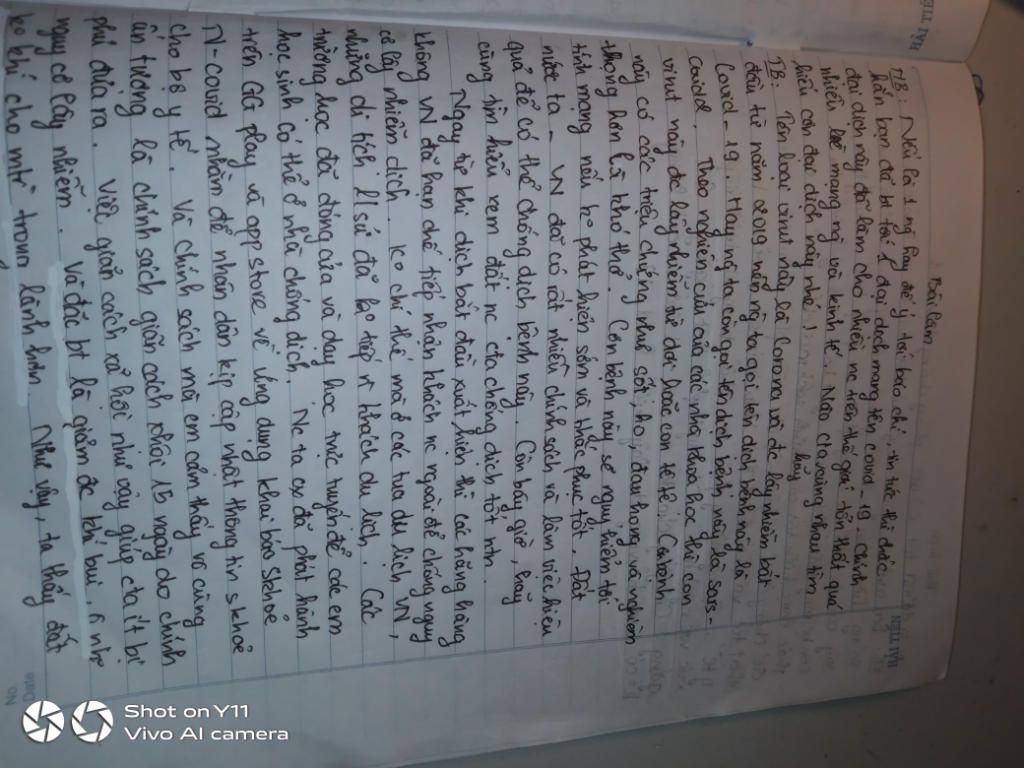 HẢI TIẾN
Bài làm
MB: Nếu là 1 ng hay để ý tới báo chí, tin tức thì chắc
hẳn bạn đã bt tới 1 đại dịch mang tên covid-19. Chính
đại dịch này đã làm cho nhiều nc trên thế giới tổn thất quá
nhiều về mạng ng và kinh tế. Nào cta cùng nhau tìm
hiểu căn đại dịch này nhé!
TB: Tên loại virut này là Corona và đc lây nhiễm bắt
đầu từ năm 2019 nên ng ta gọi tên dịch bệnh này là
Covid-19. Hay ng ta còn gọi tên dịch bệnh này là Sars-
covid.
Theo nghiên cứu của các nhà khoa học thì con
virut này dễ lây nhiễm từ dơi hoặc con tê tê. Căn bệnh
này có các triệu chứng như sốt, ho, đau họng và nghiêm
trọng hơn là khó thở. Căn bệnh này sẽ nguy hiểm tới
tính mạng nếu ko phát hiện sớm và khắc phục tốt. Đất
nước ta - VN đã có rất nhiều chính sách và làm việc hiệu
quả để có thể chống dịch bệnh này. Còn bây giờ, hãy
cùng tìm hiểu xem đất nc cta chống dịch tốt ntn.
Ngay từ khi dịch bắt đầu xuất hiện thì các hãng hàng
không VN đã hạn chế tiếp nhận khách nc ngoài để chống nguy
cơ lây nhiễm dịch. Ko chỉ thế mà ở các tua du lịch VN,
những di tích l/sử đã ko tiếp n khách du lịch. Các
trường học đã đóng cửa và dạy học trực tuyến để các em
học sinh có thể ở nhà chống dịch. Nc ta cx đã phát hành
trên GG play và app store về ứng dụng khai báo skhoẻ
N-covid nhằm để nhân dân kịp cập nhật thông tin skhoẻ
cho bộ y tế. Và chính sách mà em cảm thấy vô cùng
ấn tượng là chính sách giãn cách xã hội 15 ngày do chính
phủ đưa ra. Việc giãn cách xã hội như vậy giúp cta ít bị
nguy cơ lây nhiễm. Và đặc bt là giảm đc khí bụi, ô nh
ko khí cho mtr trong lành hơn. Như vậy, ta thấy đất
Shot on Y11
Vivo AI camera